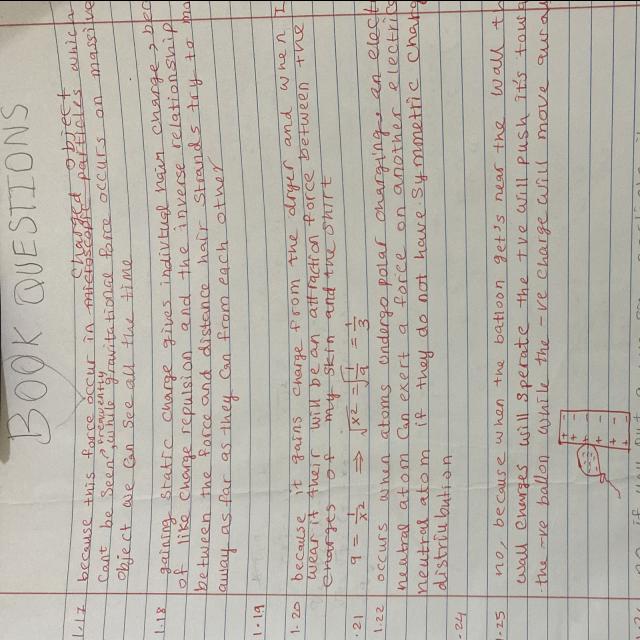 BOOK QUESTIONS
charged object
1.17 because this force occur in microscopic particles which
can't be seen frequently, while gravitational force occurs on massive
object we can see all the time
1.18 gaining static charge gives individual hair charge, bec
of like charge repulsion and the inverse relationship
between the force and distance hair strands try to mo
away as far as they can from each other
1.19
1.20 because it gains charge from the dryer and when I
wear it their will be an attraction force between the
charges of my skin and the shirt
.21 9 = 1/x² ⇒ √x² = √1/9 = 1/3
1.22 occurs when atoms undergo polar charging an elect
neutral atom can exert a force on another electric
neutral atom if they do not have symmetric charg
distribution
.24
1.25 no, because when the balloon get's near the wall th
wall charges will sperate the +ve will push it's towa
the -ve ballon while the -ve charge will move away
+ -
+ -
+ -
+ -